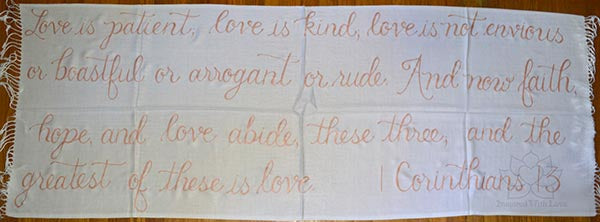 Love is patient, love is kind, love is not envious
or boastful or arrogant or rude. And now faith,
hope, and love abide, these three, and the
greatest of these is love. 1 Corinthians 13
Inspired With Love